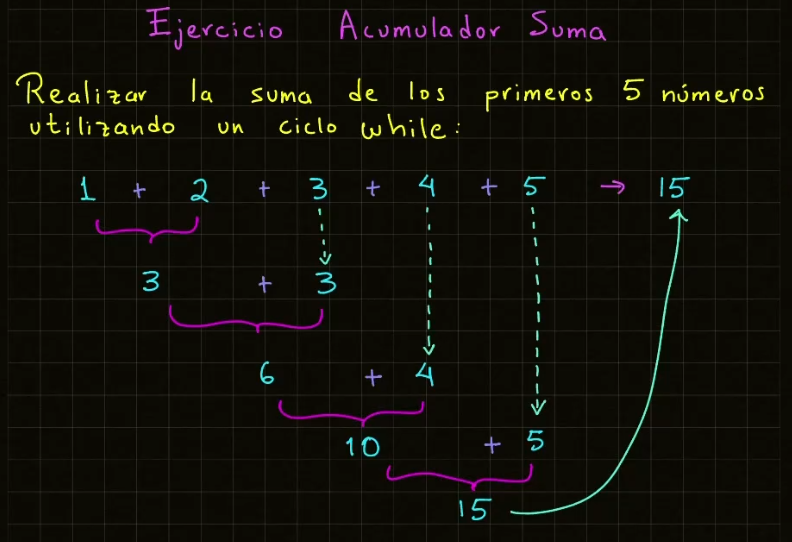 Ejercicio Acumulador Suma
Realizar la suma de los primeros 5 números
utilizando un ciclo while:
1 + 2 + 3 + 4 + 5 → 15
3 + 3
6 + 4
10 + 5
15